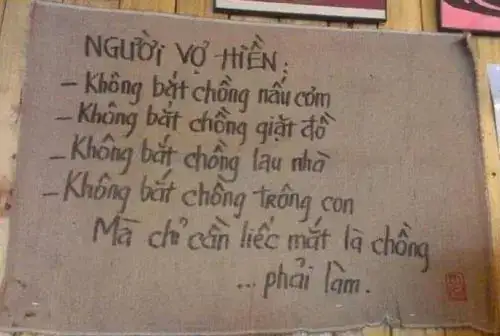 NGƯỜI VỢ HIỀN:
- Không bắt chồng nấu cơm
- Không bắt chồng giặt đồ
- Không bắt chồng lau nhà
- Không bắt chồng trông con
Mà chỉ cần liếc mắt là chồng
... phải làm.